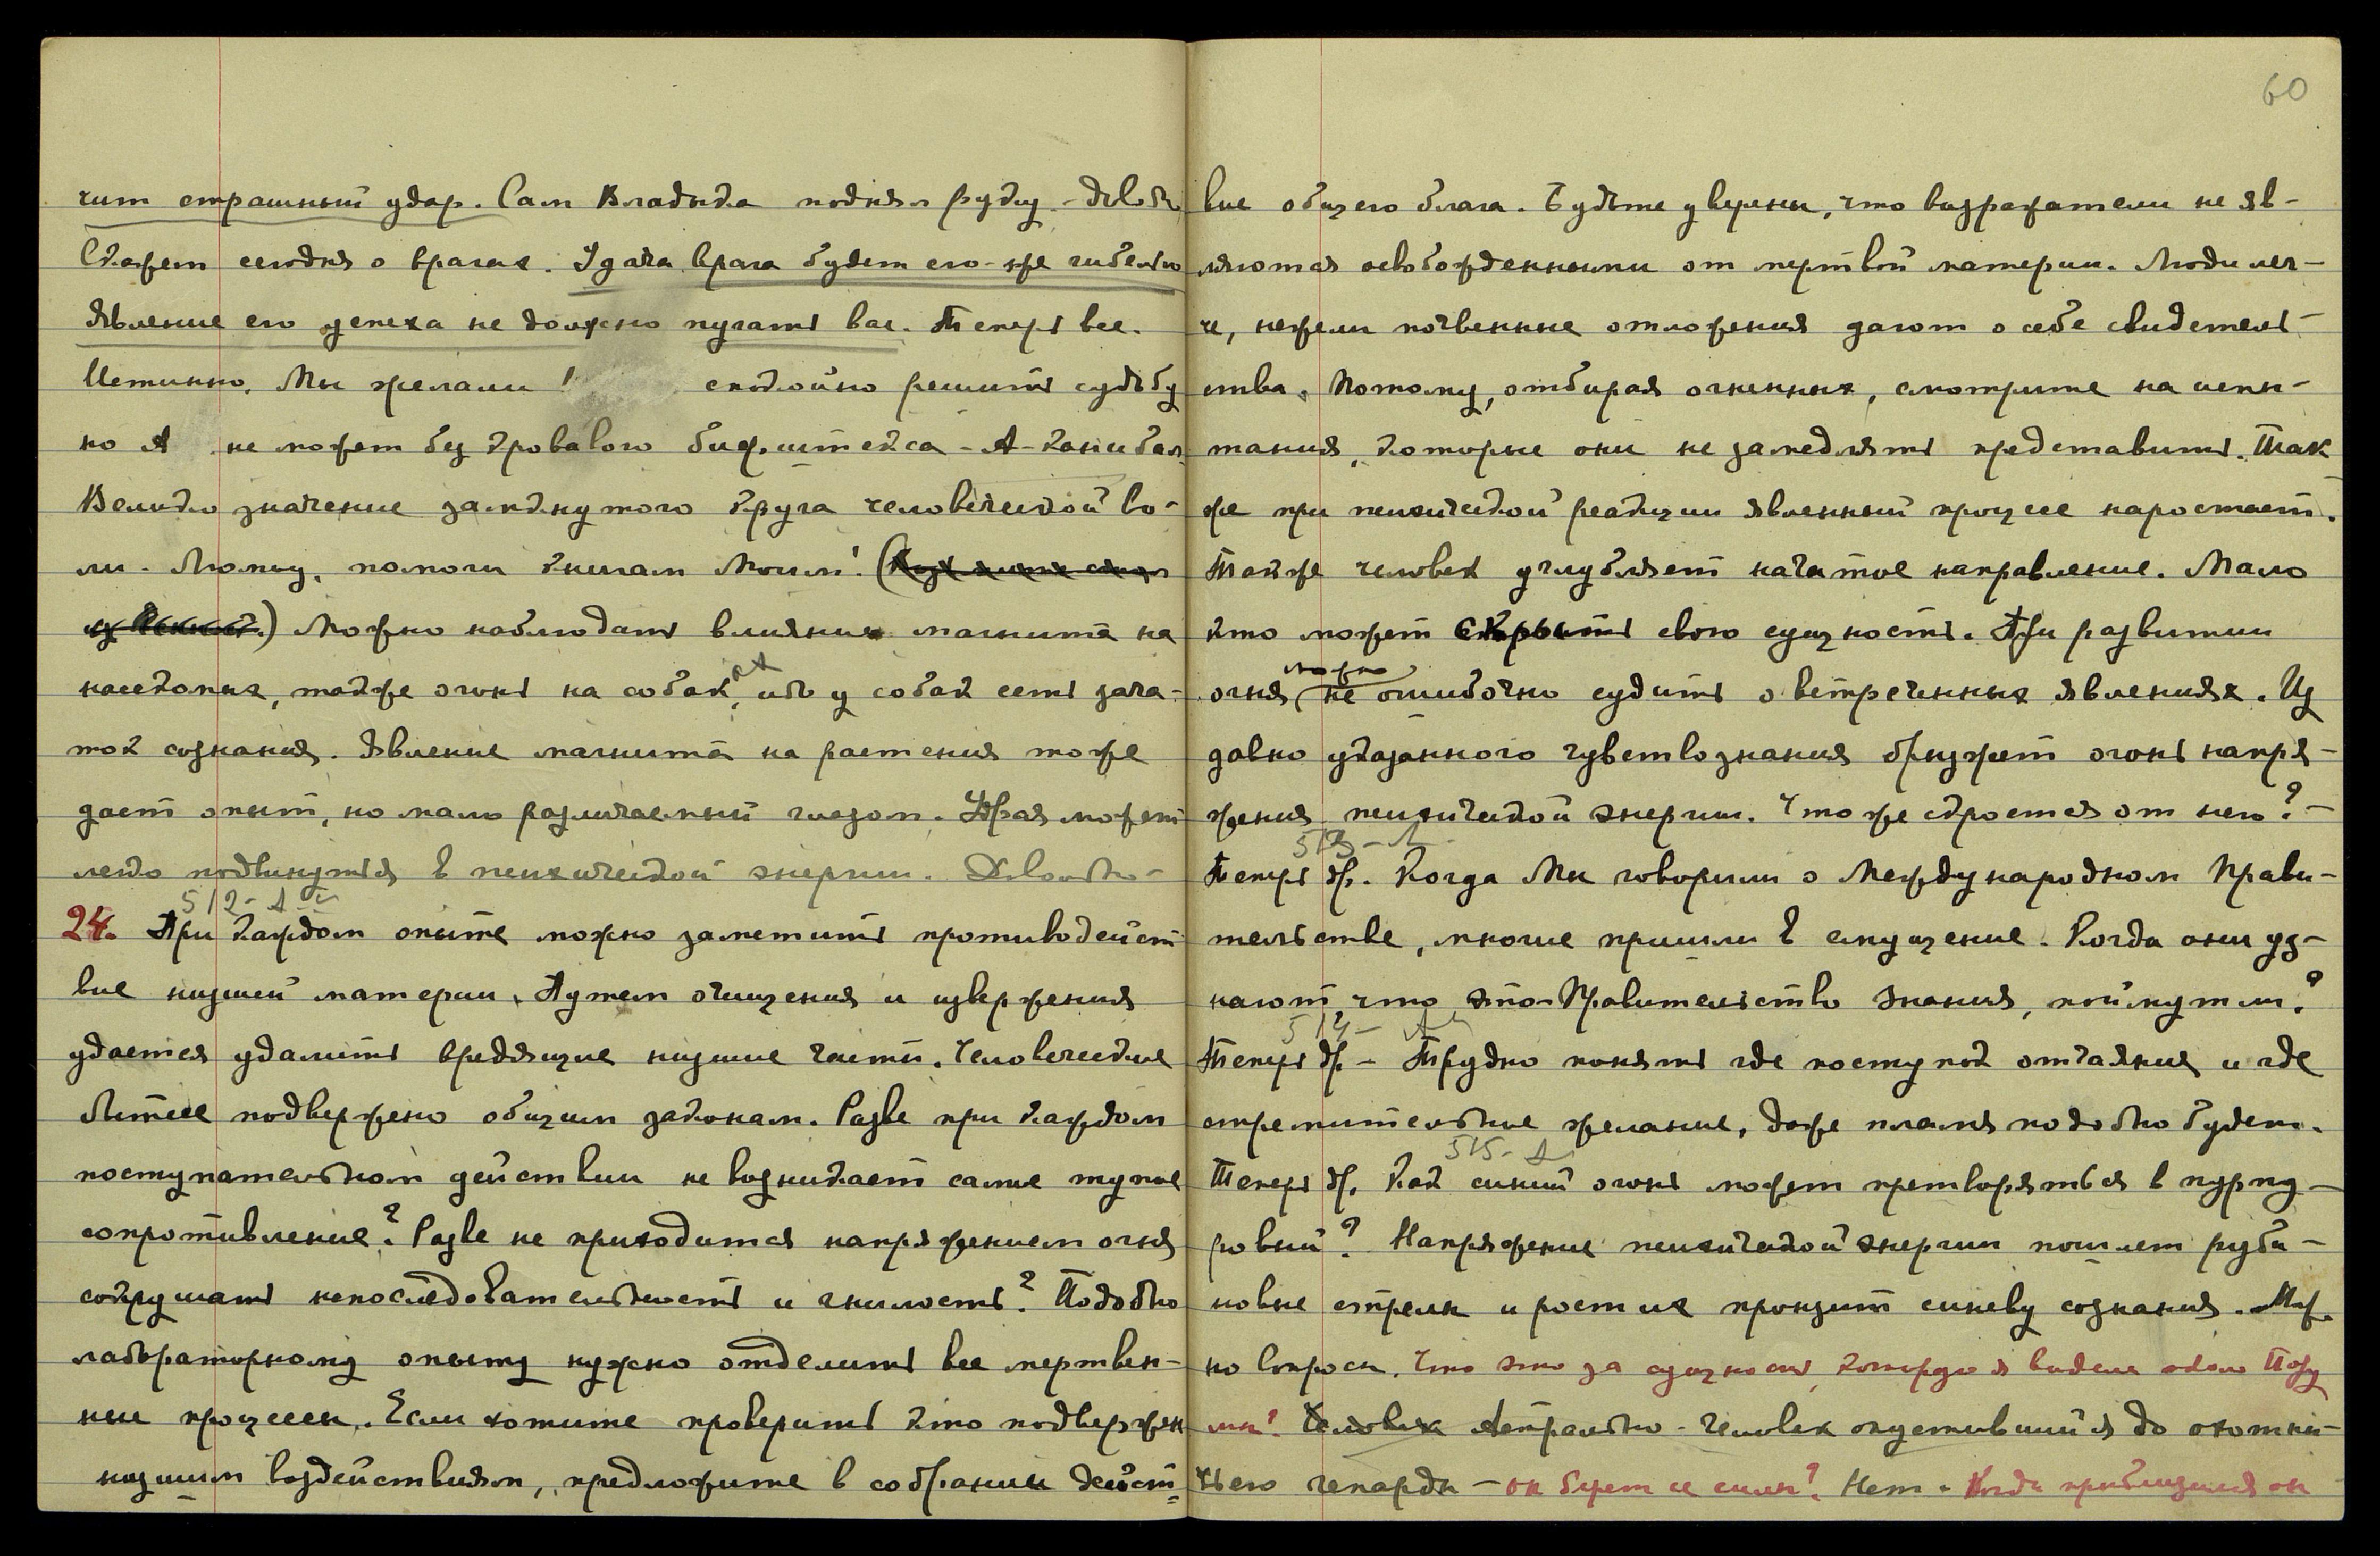 чит страшный удар. Сам Владыка поднял руку. – Довольно
Скажет сегодня о врагах. Удача врага будет его-же гибелью
Явление его успеха не должно пугать вас. Теперь все.
Истинно, Мы желали ! спокойно решить судьбу
но А не может без кровавого бифштекса – А – канибал
Велико значение замкнутого круга человеческой во-
ли. Люмоу, помоги книгам Моим! (
) Можно наблюдать влияние магнита на
насекомых, также огонь на собак, ибо у собак есть зача-
ток сознания. Явление магнита на растения тоже
дает опыт, но мало различаемый глазом. Удрая может
легко подвинуться в психической энергии. Довольно –
512 – А
24. При каждом опыте можно заметить противодейст
вие низшей материи. Путем очищения и извержения
удается удалить вредящие низшие части. Человеческие
бытие подвержено общим законам. Разве при каждом
поступательном действии не возникает самые тупые
сопротивление? Разве не приходится напряжением огня
сокрушать непоследовательность и гнилость? Подобно
лабораторному опыту нужно отделить все мертвен-
ные процессы. Если хотите проверить кто подвержен
низшим воздействиям, предложите в собрании дейст=
60
вие общего блага. Будьте уверены, что возражатели не яв-
ляются освобожденными от мертвой материи. Люди лег-
че, нежели почвенные отложения дают о себе свидетель-
ства. Потому, отбирая огненных, смотрите на испы-
тания, которые они не замедлять представить. Так
же при психической реакции явленный процесс наростает.
Также человек углубляет начатое направление. Мало
кто может скрыть свою сущность. При развитии
можно
огня не ошибочно судить о встреченных явлениях. Из
давно указанного чувствознания брызжет огонь напря-
жения психической энергии. Что же скроется от него? –
513 – А
Теперь др. Когда Мы говорили о Международном Прави-
тельстве, многие пришли в смущение. Когда они уз-
нают, что это – Правительство Знания, поймут ли?
514 – А
Теперь др. – Трудно понять где поступок отчаяния и где
стремительные желание, даже пламя подобно будет.
515 – А
Теперь др. Как синий огонь может претворяться в пурпу-
ровый? Напряжение психической энергии пошлет руби-
новые стрелы и рост их пронзит синеву сознания. Мож
но вопросы. Что это за сущность, которую я видела около Пору
мы? Человек Астрально – человек опустившийся до охотни-
чьего гепарда – он берет ее силы? Нет. Когда приблизился он